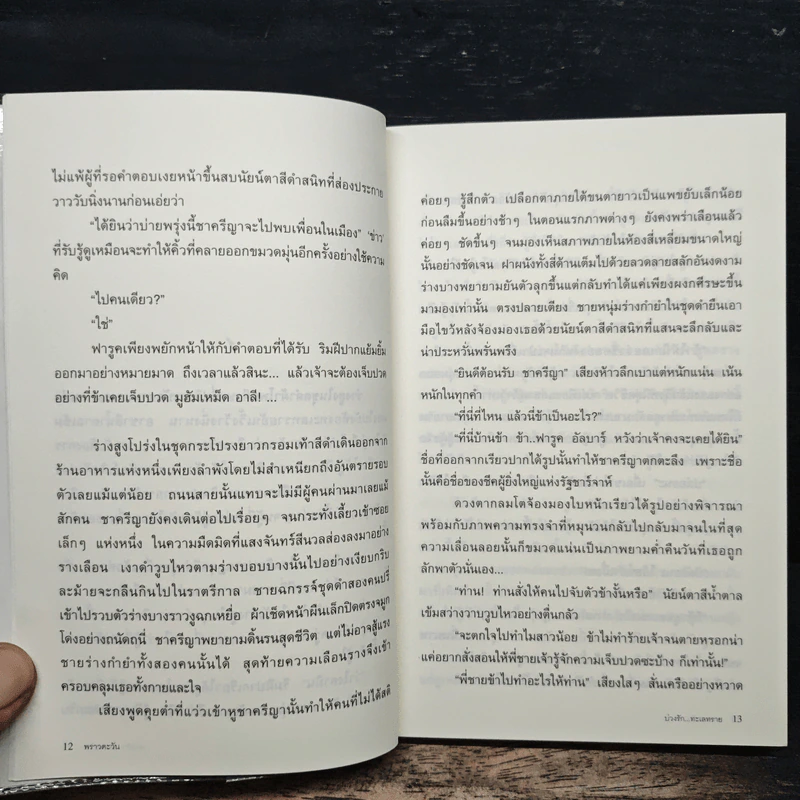 ไม่แพ้ผู้ที่รอคำตอบเงยหน้าขึ้นสบนัยน์ตาสีดำสนิทที่ส่องประกาย
วาววับนิ่งนานก่อนเอ่ยว่า
"ได้ยินว่าบ่ายพรุ่งนี้ชาครียาจะไปพบเพื่อนในเมือง" 'ข่าว'
ที่รับรู้ดูเหมือนจะทำให้คิ้วที่คลายออกขมวดมุ่นอีกครั้งอย่างใช้ความ
คิด
"ไปคนเดียว?"
"ใช่"
ฟารูคเพียงพยักหน้าให้กับคำตอบที่ได้รับ ริมฝีปากแย้มยิ้ม
ออกมาอย่างหมายมาด ถึงเวลาแล้วสินะ... แล้วเจ้าจะต้องเจ็บปวด
อย่างที่ข้าเคยเจ็บปวด มูฮัมเหม็ด อาลี! ...
ร่างสูงโปร่งในชุดกระโปรงยาวกรอมเท้าสีดำเดินออกจาก
ร้านอาหารแห่งหนึ่งเพียงลำพังโดยไม่สำเหนียกถึงอันตรายรอบ
ตัวเลยแม้แต่น้อย ถนนสายนั้นแทบจะไม่มีผู้คนผ่านมาเลยแม้
สักคน ชาครียายังคงเดินต่อไปเรื่อยๆ จนกระทั่งเลี้ยวเข้าซอย
เล็กๆ แห่งหนึ่ง ในความมืดมิดที่แสงจันทร์สีนวลส่องลงมาอย่าง
รางเลือน เงาดำวูบไหวตามร่างบอบบางนั้นไปอย่างเงียบกริบ
ละม้ายจะกลืนกินไปในราตรีกาล ชายฉกรรจ์ชุดดำสองคนปรี่
เข้าไปรวบตัวร่างบางราวงูฉกเหยื่อ ผ้าเช็ดหน้าผืนเล็กปิดตรงจมูก
โด่งอย่างถนัดถนี่ ชาครียาพยายามดิ้นรนสุดชีวิต แต่ไม่อาจสู้แรง
ชายร่างกำยำทั้งสองคนนั้นได้ สุดท้ายความเลือนรางจึงเข้า
ครอบคลุมเธอทั้งกายและใจ
เสียงพูดคุยต่ำที่แว่วเข้าหูชาครียานั้นทำให้คนที่ไม่ได้สติ
12 พราวตะวัน
ค่อยๆ รู้สึกตัว เปลือกตาภายใต้ขนตายาวเป็นแพขยับเล็กน้อย
ก่อนลืมขึ้นอย่างช้าๆ ในตอนแรกภาพต่างๆ ยังคงพร่าเลือนแล้ว
ค่อยๆ ชัดขึ้นๆ จนมองเห็นสภาพภายในห้องสี่เหลี่ยมขนาดใหญ่
นั้นอย่างชัดเจน ฝาผนังทั้งสี่ด้านเต็มไปด้วยลวดลายสลักอันงดงาม
ร่างบางพยายามยันตัวลุกขึ้นแต่กลับทำได้แค่เพียงผงกศีรษะขึ้น
มามองเท่านั้น ตรงปลายเตียง ชายหนุ่มร่างกำยำในชุดดำยืนเอา
มือไขว้หลังจ้องมองเธอด้วยนัยน์ตาสีดำสนิทที่แสนจะลึกลับและ
น่าประหวั่นพรั่นพรึง
"ยินดีต้อนรับ ชาครียา" เสียงห้าวลึกเบาแต่หนักแน่น เน้น
หนักในทุกคำ
"ที่นี่ที่ไหน แล้วนี่ข้าเป็นอะไร?"
"ที่นี่บ้านข้า ข้า..ฟารูค อัลบาร์ หวังว่าเจ้าคงจะเคยได้ยิน"
ชื่อที่ออกจากเรียวปากได้รูปนั้นทำให้ชาครียาตกตะลึง เพราะชื่อ
นั้นคือชื่อของชีคผู้ยิ่งใหญ่แห่งรัฐชาร์จาห์
ดวงตากลมโตจ้องมองใบหน้าเรียวได้รูปอย่างพิจารณา
พร้อมกับภาพความทรงจำที่หมุนวนกลับไปกลับมาจนในที่สุด
ความเลื่อนลอยนั้นก็ขมวดแน่นเป็นภาพยามค่ำคืนวันที่เธอถูก
ลักพาตัวนั่นเอง...
"ท่าน! ท่านสั่งให้คนไปจับตัวข้างั้นหรือ" นัยน์ตาสีน้ำตาล
เข้มสว่างวาบวูบไหวอย่างตื่นกลัว
"จะตกใจไปทำไมสาวน้อย ข้าไม่ทำร้ายเจ้าจนตายหรอกน่า
แค่อยากสั่งสอนให้พี่ชายเจ้ารู้จักความเจ็บปวดซะบ้าง ก็เท่านั้น!"
"พี่ชายข้าไปทำอะไรให้ท่าน" เสียงใสๆ สั่นเครืออย่างหวาด
บ่วงรัก...ทะเลทราย 13